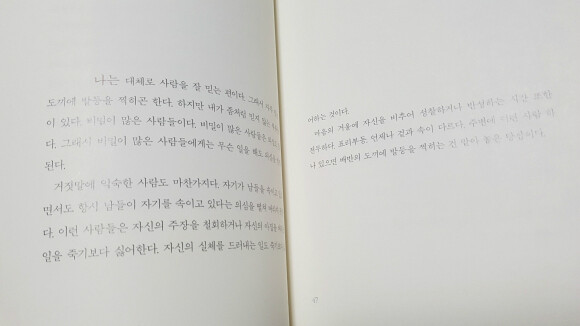 나는 대체로 사람을 잘 믿는 편이다. 그래서 자주 믿는
도끼에 발등을 찍히곤 한다. 하지만 내가 좀처럼 믿지 않는
이 있다. 비밀이 많은 사람들이다. 비밀이 많은 사람들은
다. 그래서 비밀이 많은 사람들에게는 무슨 일을 해도
된다.
거짓말에 익숙한 사람도 마찬가지다. 자기가 남들을 속이고
면서도 항시 남들이 자기를 속이고 있다는 의심을 떨쳐
다. 이런 사람들은 자신의 주장을 철회하거나 자신의
일을 죽기보다 싫어한다. 자신의 실체를 드러내는 일도
여하는 것이다.
마음의 거울에 자신을 비추어 성찰하거나 반성하는 시간 또한
전무하다. 표리부동. 언제나 겉과 속이 다르다. 주변에 이런 사람 하
나 있으면 백만의 도끼에 발등을 찍히는 건
47